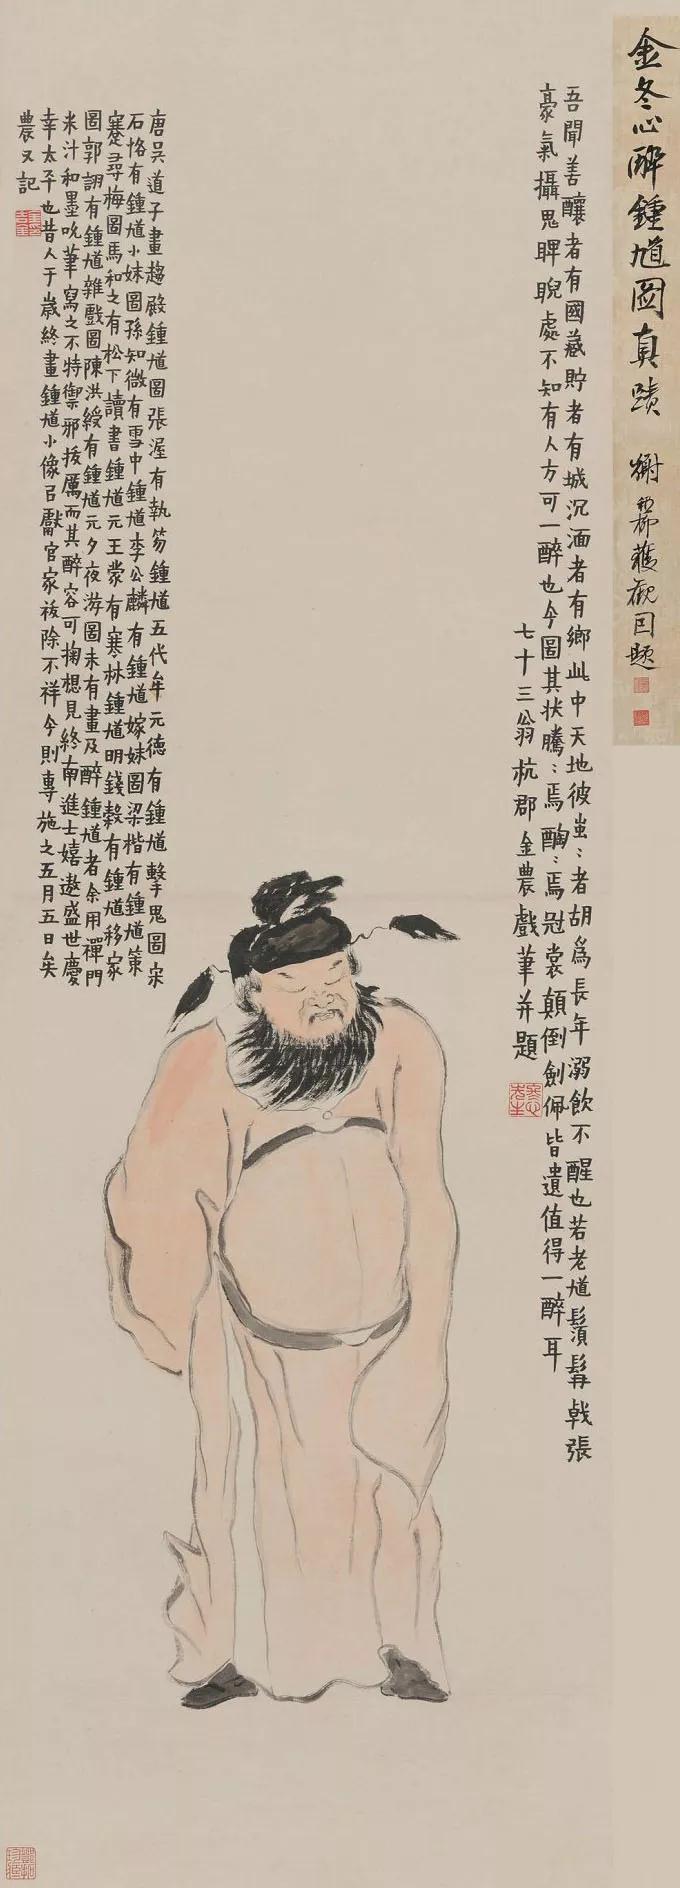 金冬心醉鍾馗圖真蹟 謝稚柳獲觀因題
吾聞善釀者有國藏貯者有城沉湎者有鄉此中天地彼蚩〻者胡爲長年溺飲不醒也若老馗鬚髯戟張
豪氣攝鬼睥睨處不知有人方可一醉也今圖其狀騰〻焉醄〻焉冠裳顛倒劍佩皆遺值得一醉耳
七十三翁杭郡金農戲筆并題
冬心先生
唐吳道子畫趨殿鍾馗圖張渥有執笏鍾馗五代牟元德有鍾馗擊鬼圖宋
石恪有鍾馗小妹圖孫知微有雪中鍾馗李公麟有鍾馗嫁妹圖梁楷有鍾馗策
蹇尋梅圖馬和之有松下讀書鍾馗元王蒙有寒林鍾馗明錢穀有鍾馗移家
圖郭詡有鍾馗雜戲圖陳洪綬有鍾馗元夕夜游圖未有畫及醉鍾馗者余用禪門
米汁和墨吮筆寫之不特禦邪抜厲而其醉容可掬想見終南進士嬉遨盛世慶
幸太平也昔人于歲終畫鍾馗小像㠯獻官家祓除不祥今則專施之五月五日矣
農又記